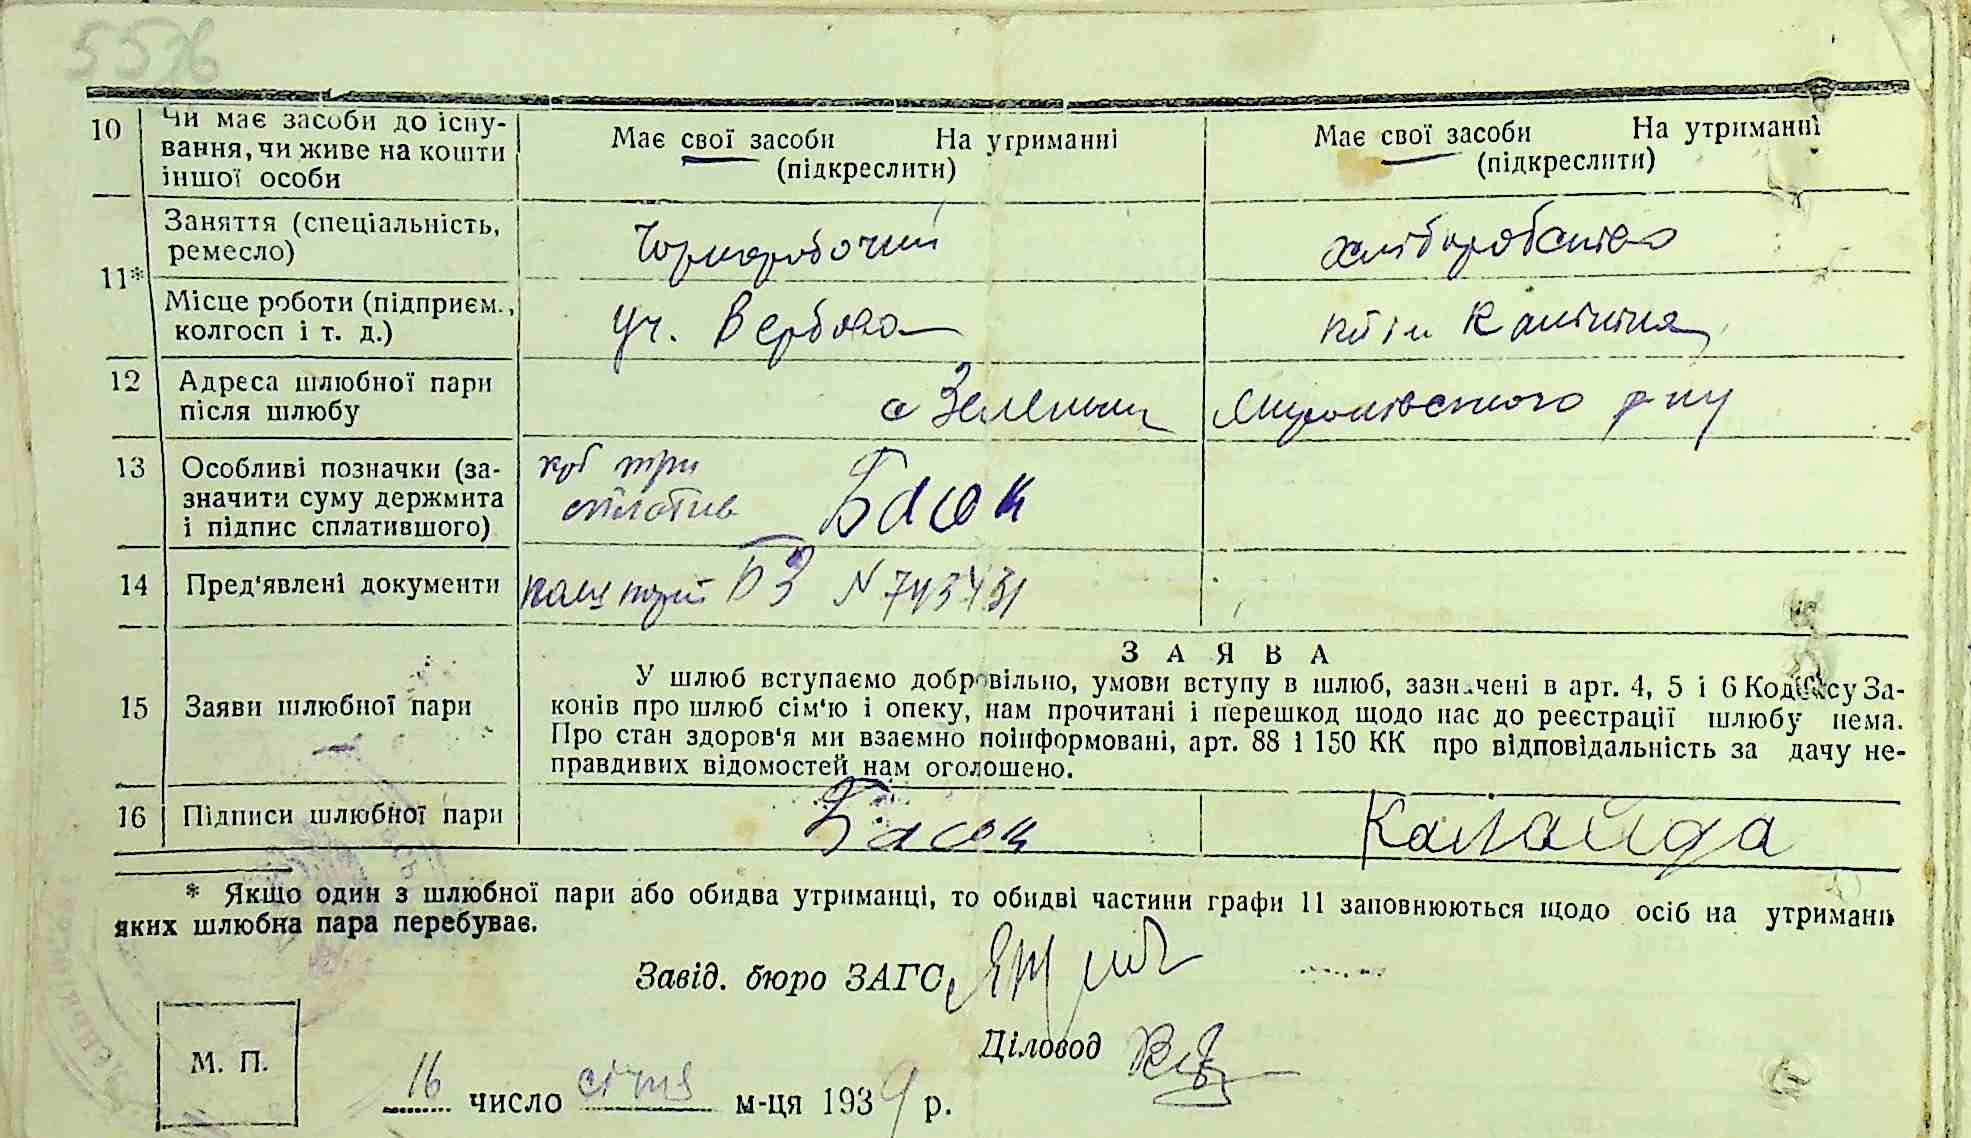 5576
10 Чи має засоби до існу-
вання, чи живе на кошти
іншої особи
Має свої засоби На утриманні
(підкреслити)
Має свої засоби На утриманні
(підкреслити)
11*
Заняття (спеціальність,
ремесло)
Чорноробочий
хліборобство
Місце роботи (підприєм.,
колгосп і т. д.)
уч. Вербова
ім Калініна
12 Адреса шлюбної пари
після шлюбу
с Зеленьки Миронівського р-ну
13 Особливі позначки (за-
значити суму держмита
і підпис сплатившого)
крб три
сплатив Басок
14 Пред'явлені документи
пашпорт БЗ N 743431
15 Заяви шлюбної пари
ЗАЯВА
У шлюб вступаємо добровільно, умови вступу в шлюб, зазначені в арт. 4, 5 і 6 Кодексу За-
конів про шлюб сім'ю і опеку, нам прочитані і перешкод щодо нас до реєстрації шлюбу нема.
Про стан здоров'я ми взаємно поінформовані, арт. 88 і 150 КК про відповідальність за дачу не-
правдивих відомостей нам оголошено.
16 Підписи шлюбної пари
Басок
Калайда
* Якщо один з шлюбної пари або обидва утриманці, то обидві частини графи 11 заповнюються щодо осіб на утриманні
яких шлюбна пара перебуває.
Завід. бюро ЗАГС
Діловод
М. П.
16 число січня м-ця 1939 р.